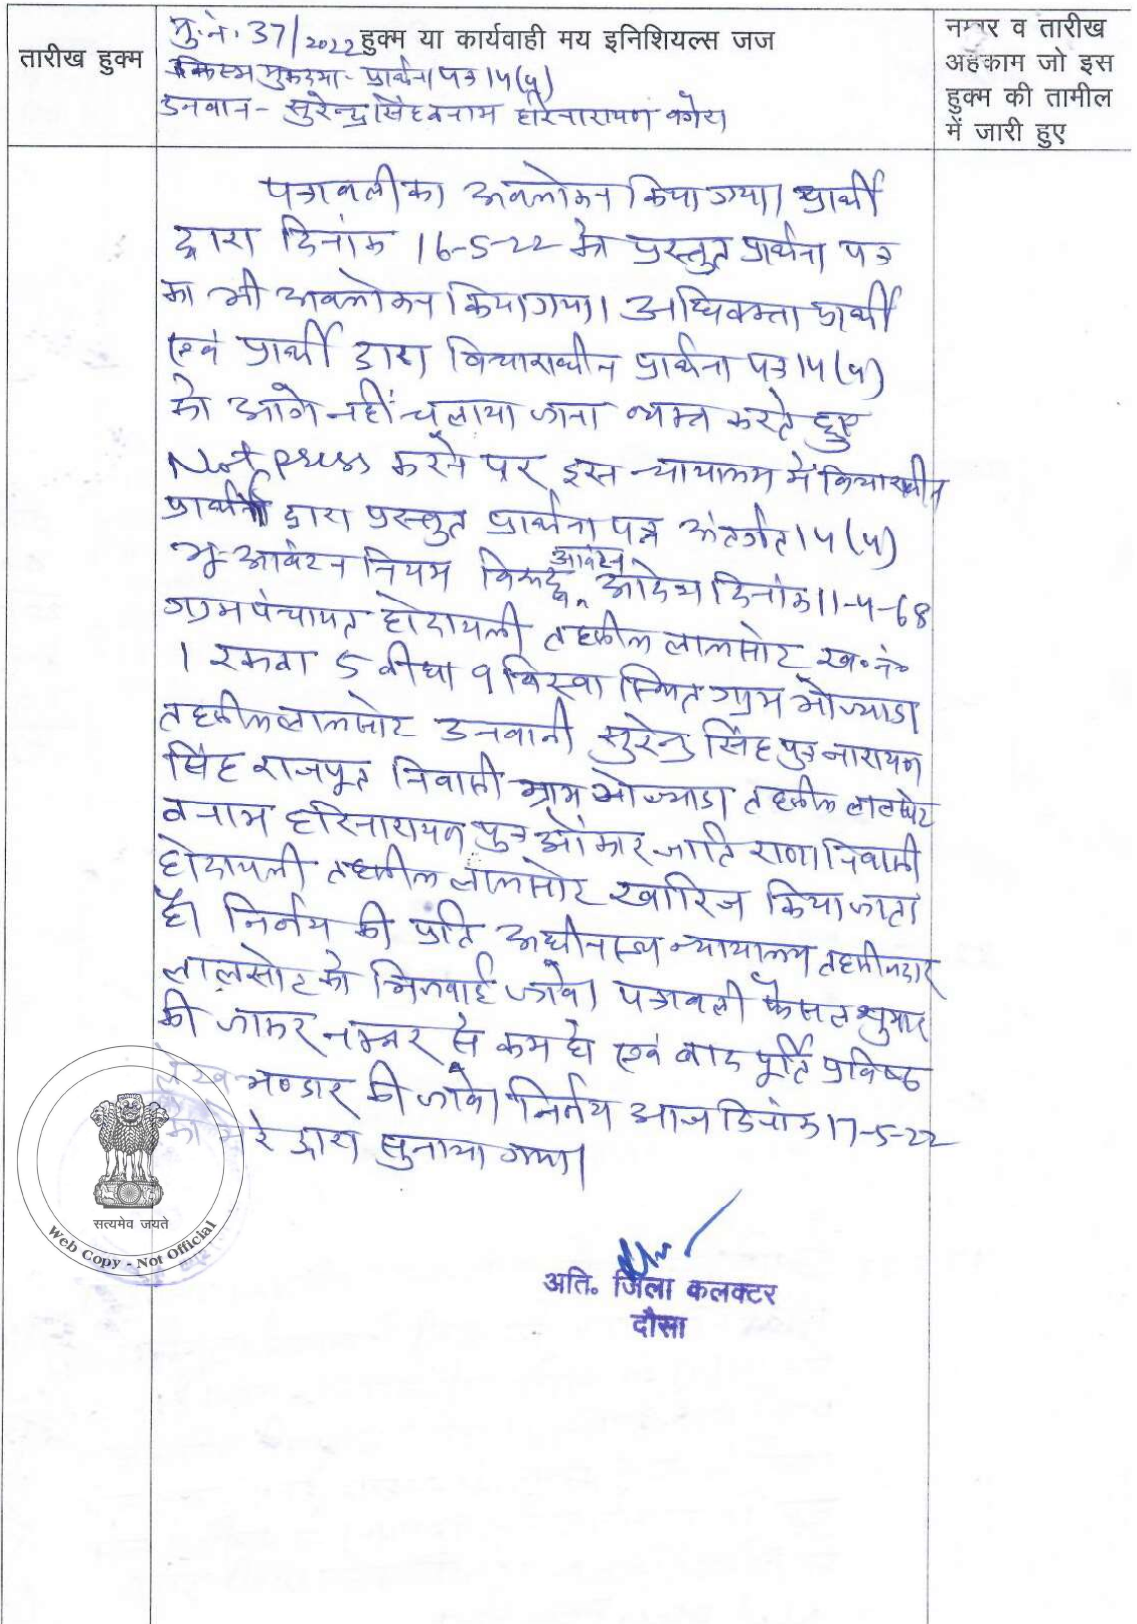 तारीख हुक्म
मु.नं. 37/2022 हुक्म या कार्यवाही मय इनिशियल्स जज
किस्म मुकदमा- प्रार्थना पत्र 14(4)
उनवान - सुरेन्द्र सिंह बनाम हरिनारायण वगैरा
नम्बर व तारीख
अहकाम जो इस
हुक्म की तामील
में जारी हुए
पत्रावली का अवलोकन किया गया। प्रार्थी
द्वारा दिनांक 16-5-22 को प्रस्तुत प्रार्थना पत्र
का भी अवलोकन किया गया। अधिवक्ता प्रार्थी
एवं प्रार्थी द्वारा विचाराधीन प्रार्थना पत्र 14(4)
को आगे नहीं चलाया जाना व्यक्त करते हुए
Not press करने पर इस न्यायालय में विचाराधीन
प्रार्थी द्वारा प्रस्तुत प्रार्थना पत्र अंतर्गत 14(4)
भू-आवंटन नियम विरूद्ध आवंटन आदेश दिनांक 11-4-68
ग्राम पंचायत होदायली तहसील लालसोट ख.नं.
1 रकबा 5 बीघा 9 बिस्वा स्थित ग्राम भोज्याडा
तहसील लालसोट उनवानी सुरेन्द्र सिंह पुत्र नारायण
सिंह राजपूत निवासी ग्राम भोज्याडा तहसील लालसोट
बनाम हरिनारायण पुत्र ओंकार जाति राणा निवासी
होदायली तहसील लालसोट खारिज किया जाता
है। निर्णय की प्रति अधीनस्थ न्यायालय तहसीलदार
लालसोट को भिजवाई जावे। पत्रावली फैसल शुमार
की जाकर नम्बर से कम हो एवं बाद पूर्ति प्रविष्ठ
लेख भण्डार की जावे। निर्णय आज दिनांक 17-5-22
को मेरे द्वारा सुनाया गया।
सत्यमेव जयते
Web Copy - Not Official
अति. जिला कलक्टर
दौसा